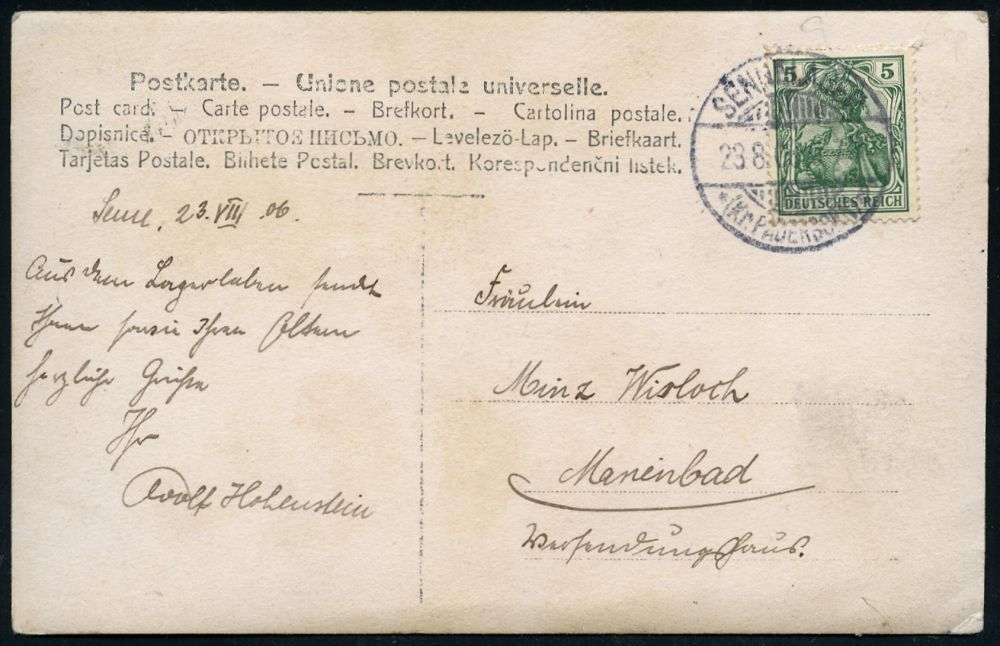 Postkarte. — Unione postale universelle.
Post card. — Carte postale. — Brefkort. — Cartolina postale.
Dopisnice. — ОТКРЫТОЕ ПИСЬМО. — Levelezö-Lap. — Briefkaart.
Tarjetas Postale. Bilhete Postal. Brevkort. Korespondenční lístek.
5 5
DEUTSCHES REICH
23.8.
Senne, 23.VIII.06.
Aus dem Lagerleben sendet
Ihnen sowie Ihren Eltern
herzliche Grüße
Ihr
Adolf Hohenstein
Fräulein
Minz Wisloch
Marienbad
Versendungshaus.